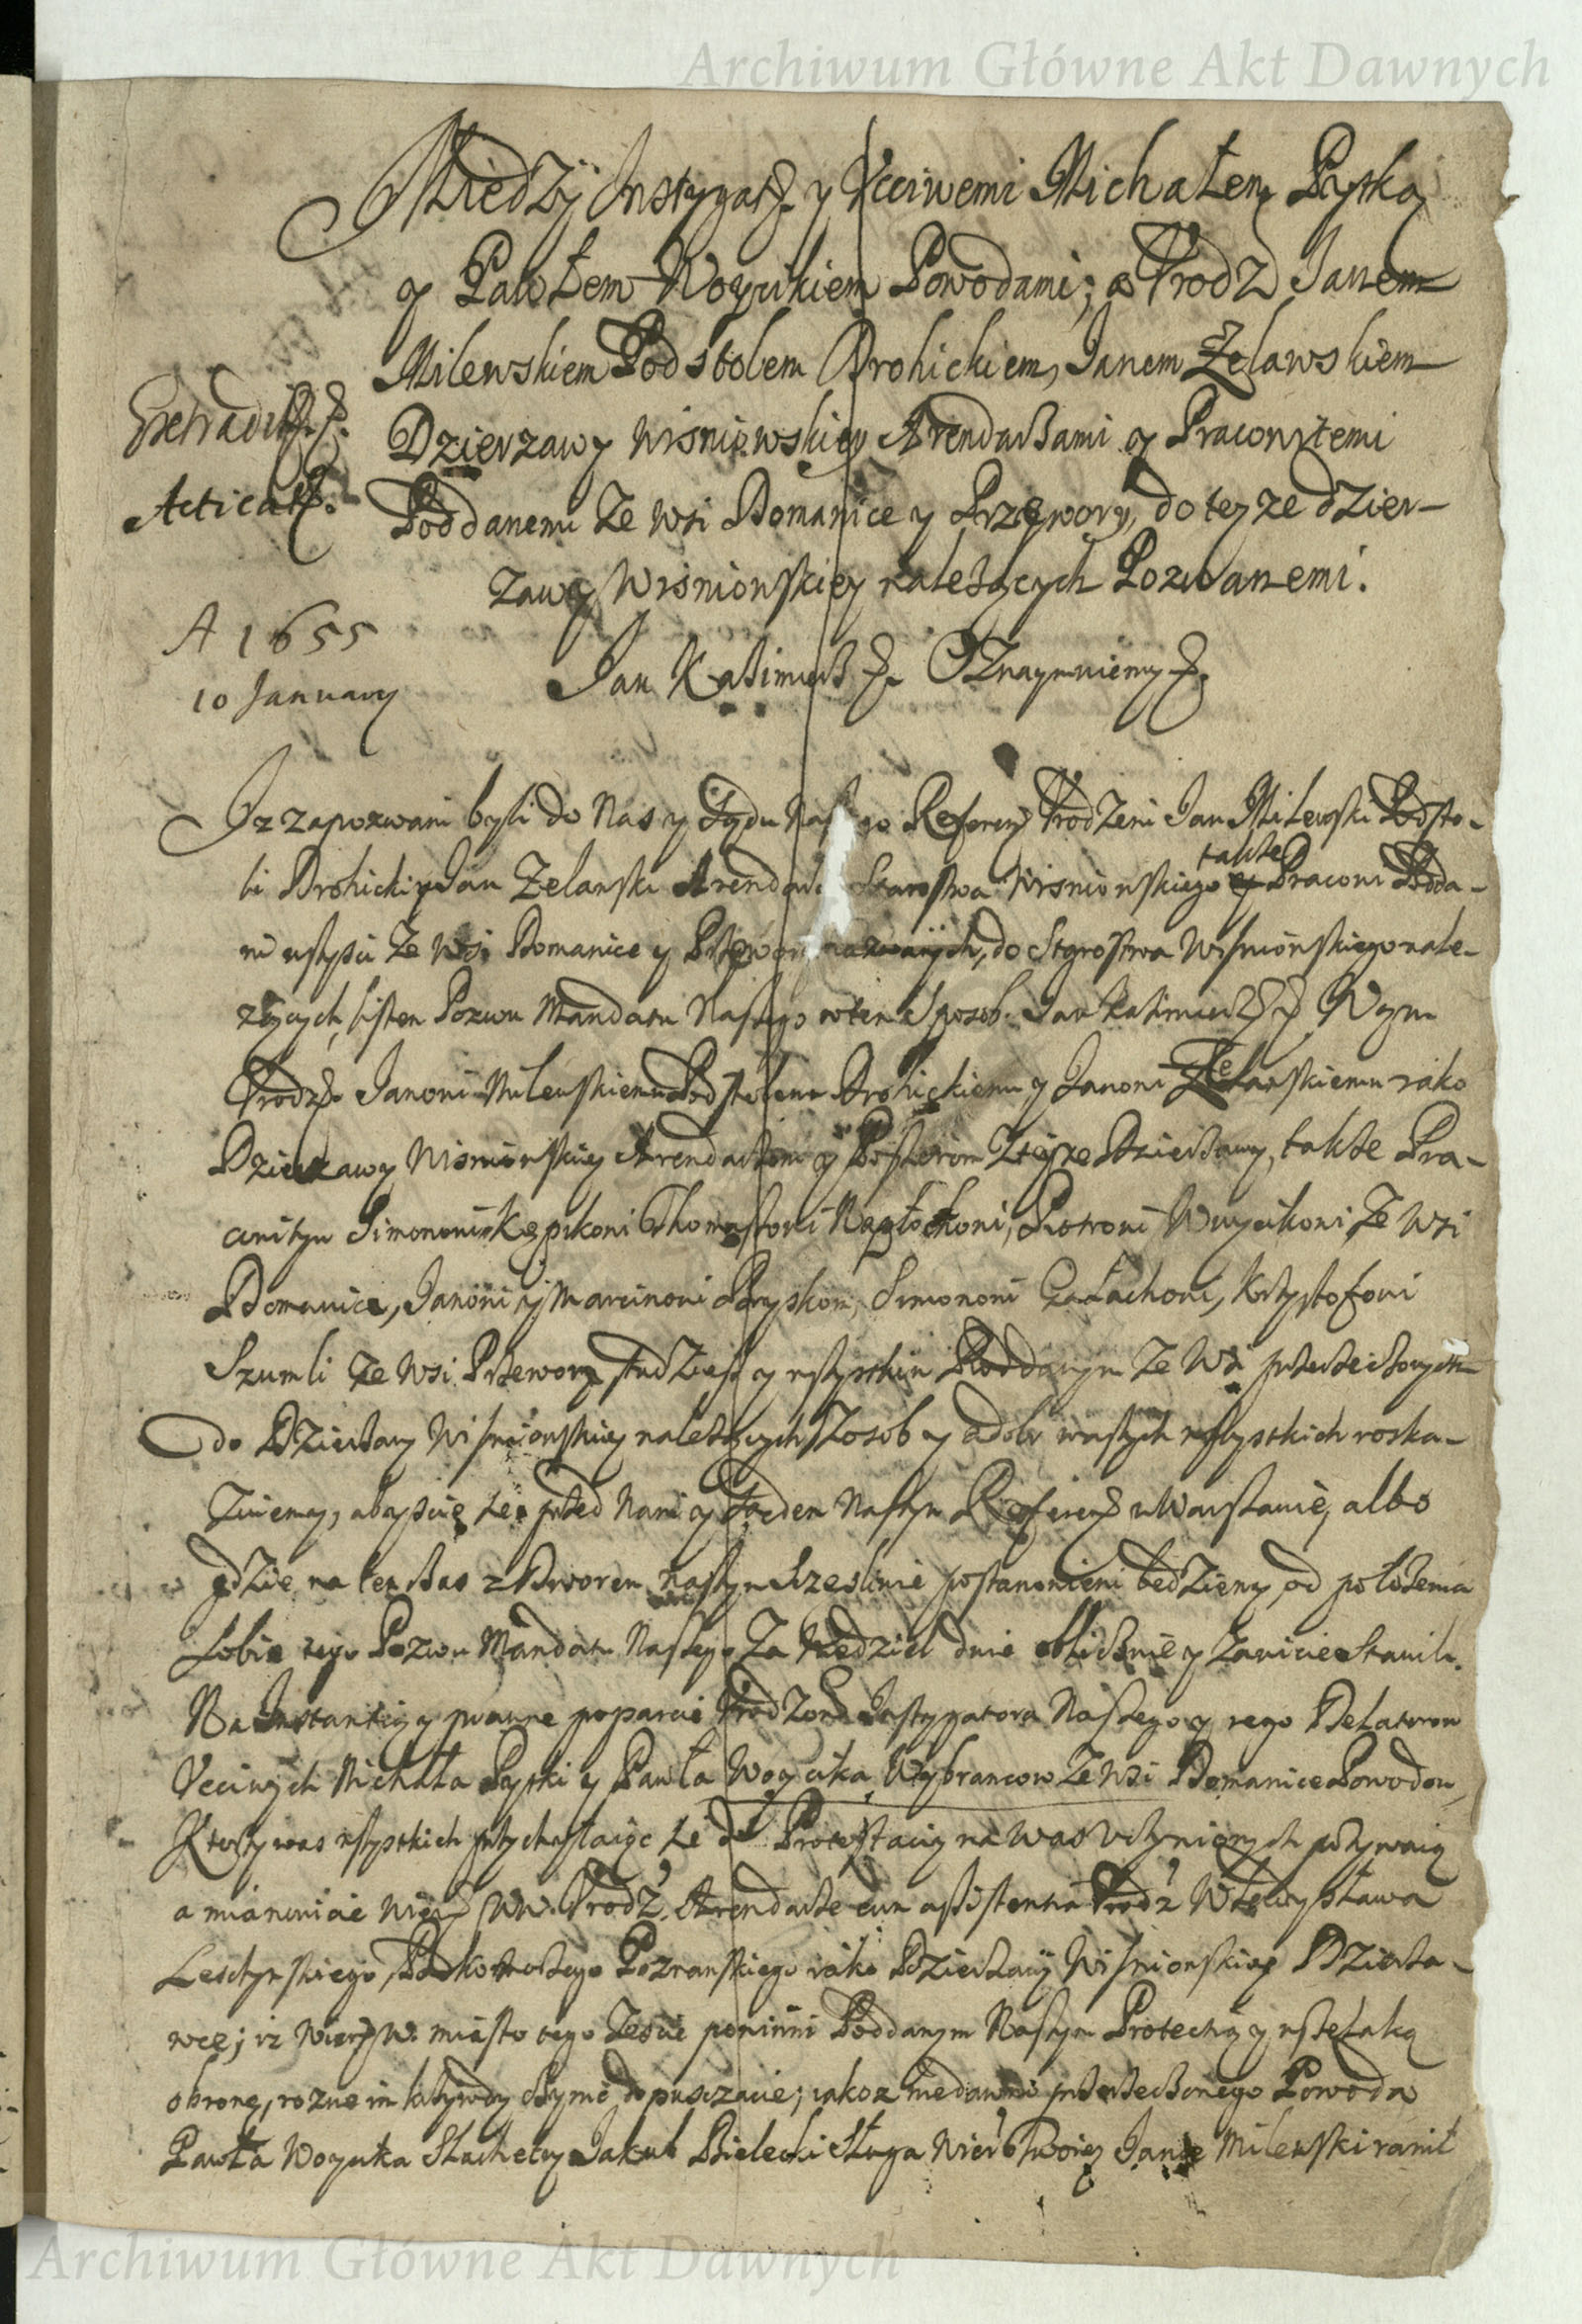 Archiwum Główne Akt Dawnych
Miedzÿ Instygat. y Vcciwemi Michałem Pyrką
y Pawłem Woycikiem Powodami; a Vrodz Janem
Milewskiem Podstolem Drohickiem, Janem Żelawskiem
Extradit.
Dzierzawy Wisniowskiey Arendarzami y Pracowitemi
Acticat.
Poddanemi Ze Wsi Domanice y Przewory, do teyze dzier-
zawy Wisniowskiey należących Pozwanemi.
A 1655
10 January
Jan Kazimierz Oznaymuiemy
Iz zapozwani byli do Nas y Sądu Naszego Referen Vrodzeni Jan Milewski Podsto-
li Drohicki y Jan Zelawski Arendarze Starostwa Wisniowskiego także Pracowi Podda-
ni wszysci Ze Wsi Domanice y Przewory nazwanych, do Starostwa Wisniowskiego nale-
zących, listem Pozwu Mandatu Naszego w ten Sposob. Jan Kazimierz Wam
Vrodz. Janowi Milewskiemu Podstolemu Drohickiemu y Janowi Zelawskiemu iako
Dzierzawy Wisniowskiey Arendarzom y Possesorom Teyze Dzierżawy, także Pra-
cowitym Simonowi Kępkowi Thomaszowi Nagłockowi, Piotrowi Woycikowi Ze Wsi
Domanice, Janowi y Marcinowi Pryskom, Simonowi Gałachowi, Krzysztofowi
Szumli Ze Wsi Przewory, tudziesz y wszystkim Poddanym Ze Wsi przerzeczonych
do Dzierżawy Wisniowskiey należących Z osob y dobr waszych wszystkich roska-
zuiemy, abyscie się przed Nami y Sądem Naszym Referen w Warszawie, albo
gdzie na ten czas z Dworem naszym szczesliwie postanowieni będziemy, od położenia
sobie tego Pozwu Mandatu Naszego Za Niedziel dwie oblicznie y zawicie stawili.
Na Instantią y prawne poparcie Vrodzone Instygatora Naszego y iego Delatorow
Vcciwych Michała Pyrki y Pawła Woycika Wybrancow Ze Wsi Domanice Powodow,
Ktorzy was wszystkich przychylaiąc się do Protestaciy na was Vczynionych pozywaią
a mianowicie Wier WW. Vrodz. Arendarze cum assistentia Vrodz Władysława
Lesczynskiego, Podkomorzego Poznanskiego iako Dzierżawy Wisniowskiey Dzierża-
wce; iz Wier W. miasto tego Zescie powinni Poddanym Naszym Protectią y wszelaką
obronę, rozne im krzywdy czynic dopuszczacie; iakoz niedawno przerzeczonego Powoda
Pawła Woycika Szlachetny Jakub Bielecki Sługa Wier Twoiey Janie Milewski ranił
Archiwum Główne Akt Dawnych